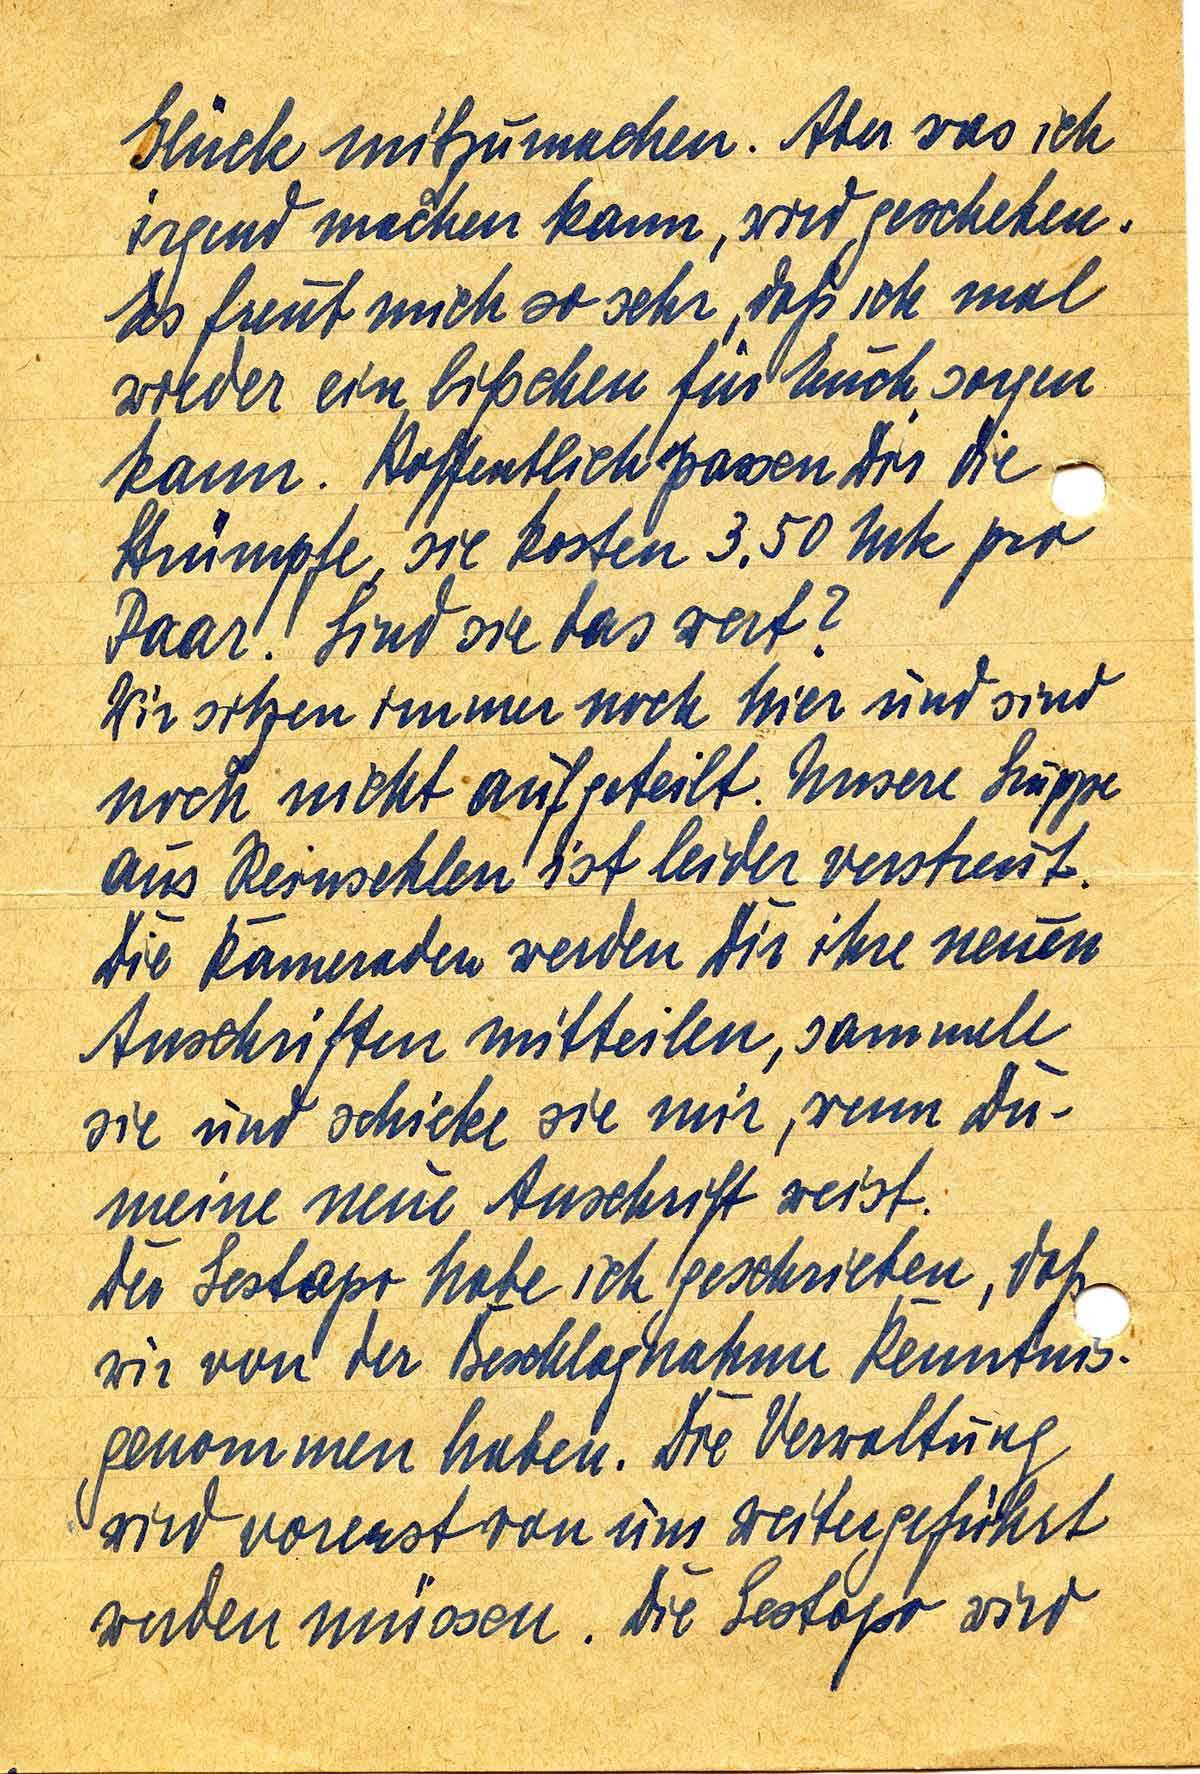 Glück mitzumachen. Aber was ich
irgend machen kann, wird geschehen.
Es freut mich so sehr, daß ich mal
wieder ein bißchen für Euch sorgen
kann. Hoffentlich passen Dir die
Strümpfe, sie kosten 3.50 Mk pro
Paar! Sind sie das wert?
Wir sitzen immer noch hier und sind
noch nicht aufgeteilt. Unsere Gruppe
aus Reinsehlen ist leider verstreut.
Die Kameraden werden Dir ihre neuen
Anschriften mitteilen, sammele
sie und schicke sie mir, wenn Du
meine neue Anschrift weist.
Der Gestapo habe ich geschrieben, daß
wir von der Beschlagnahme Kenntnis
genommen haben. Die Verwaltung
wird vorerst von uns weitergeführt
werden müssen. Die Gestapo wird